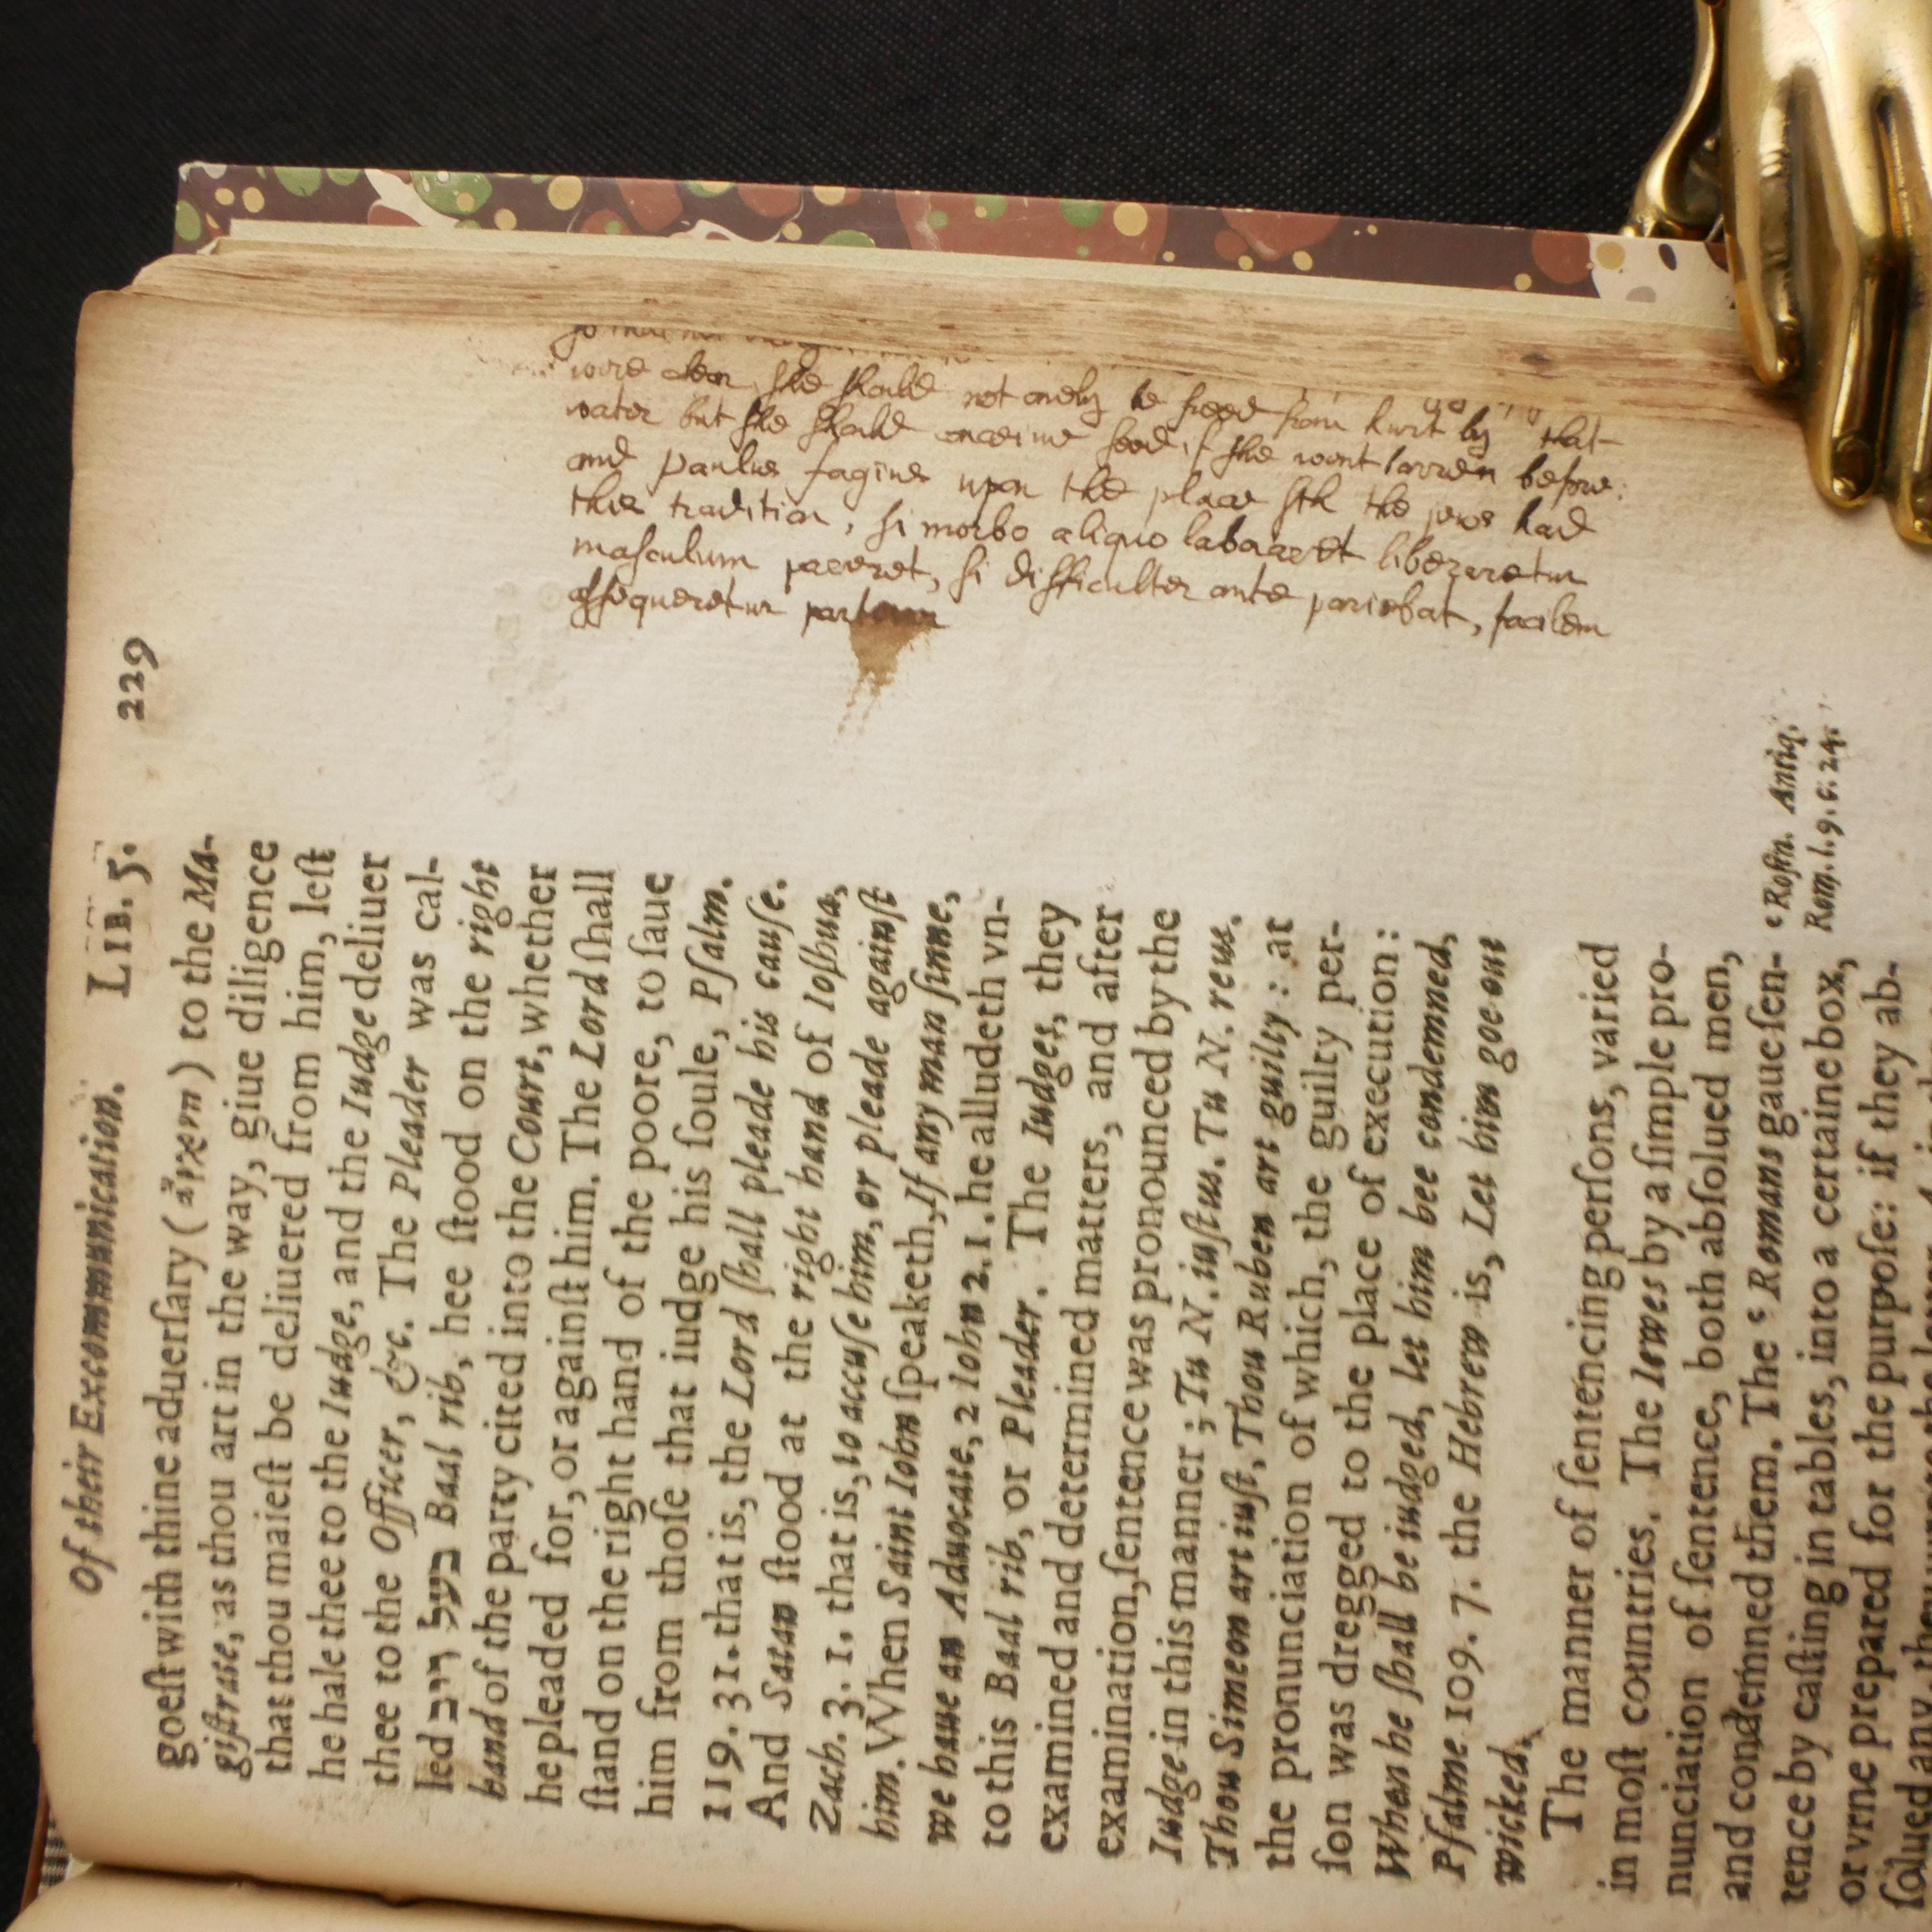 Of their Excommunication. LIB. 5. 229
goeſt with thine aduerſary (ἄρχοντι) to the Ma-
giſtrate, as thou art in the way, giue diligence
that thou maieſt be deliuered from him, leſt
he hale thee to the Iudge, and the Iudge deliuer
thee to the Officer, &c. The Pleader was cal-
led בעל ריב Baal rib, hee ſtood on the right
hand of the party cited into the Court, whether
he pleaded for, or againſt him. The Lord ſhall
ſtand on the right hand of the poore, to ſaue
him from thoſe that iudge his ſoule, Pſalm.
119. 31. that is, the Lord ſhall pleade his cauſe.
And Satan ſtood at the right hand of Ioſhua,
Zach. 3. 1. that is, to accuſe him, or pleade againſt
him. When Saint Iohn ſpeaketh, If any man ſinne,
we haue an Aduocate, 2 Iohn 2. 1. he alludeth vn-
to this Baal rib, or Pleader. The Iudges, they
examined and determined matters, and after
examination, ſentence was pronounced by the
Iudge in this manner; Tu N. iuſtus. Tu N. reus.
Thou Simeon art iuſt, Thou Ruben art guilty: at
the pronunciation of which, the guilty per-
ſon was dregged to the place of execution:
When he ſhall be iudged, let him bee condemned,
Pſalme 109. 7. the Hebrew is, Let him goe out
wicked.
The manner of ſentencing perſons, varied
in moſt countries. The Iewes by a ſimple pro-
nunciation of ſentence, both abſolued men,
and condemned them. The c Romans gaue ſen-
tence by caſting in tables, into a certaine box,
or vrne prepared for the purpoſe: if they ab-
ſolued any, they
c Roſin. Antiq.
Rom. l. 9. c. 24.
were clean, she should not onely be freed from hurt by that
water but she should conceiue seed, if she went barren before:
and Paulus fagius upon the place sth the jews had
this tradition, si morbo aliquo laboraret liberaretur
masculum pareret, si difficulter ante pariebat, facilem
assequeretur partum